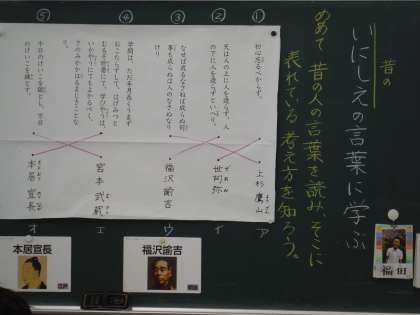 昔の
いにしえの言葉に学ぶ
めあて 昔の人の言葉を読み、そこに
表れている考え方を知ろう。
①
初心忘るべからず。
②
天は人の上に人を造らず、人
の下に人を造らずといへり。
③
なせば成るなさねば成らぬ何
事も成らぬは人のなさぬなり
けり
④
学問は、ただ年月長くうまず
おこたらずして、はげみつと
むるぞ肝要にて、学びやうは、
いかやうにてもよかるべく、
さのみかかはるまじきことな
り
⑤
千日のけいこを鍛とし、万日
のけいこを錬とす。
ア
上杉鷹山
イ
世阿弥
ウ
福沢諭吉
エ
宮本武蔵
オ
本居宣長
福沢諭吉
本居宣長
福田